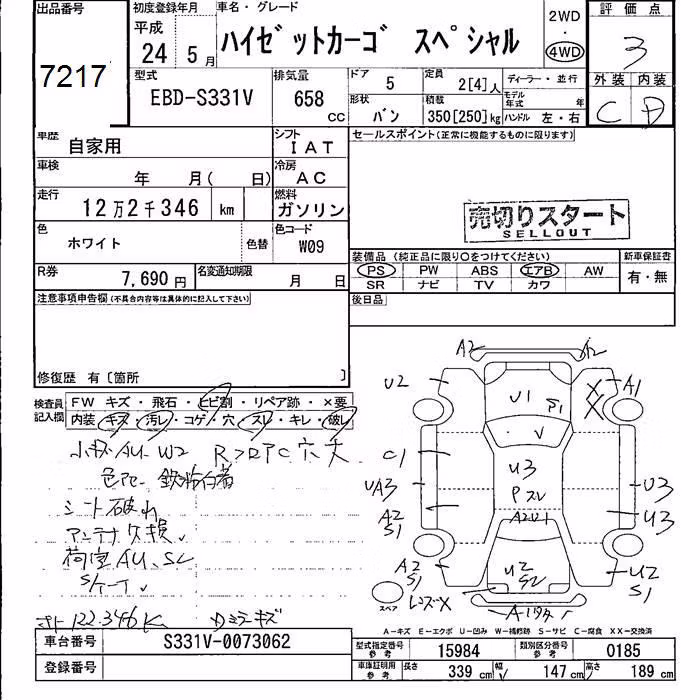 出品番号
7217
初度登録年月
平成
24 5月
車名・グレード
ハイゼットカーゴ スペシャル
2WD
・
4WD
評価点
3
外装 内装
C D
型式
EBD-S331V
排気量
658
CC
ドア
5
定員
2[4]人
ディーラー・並行
モデル年式 年
形状
バン
積載
350[250]kg
ハンドル 左・右
車歴
自家用
シフト
IAT
セールスポイント(正常に機能するものに限ります)
車検
年 月( 日)
冷房
AC
走行
12万2千346 km
燃料
ガソリン
売切りスタート
SELLOUT
色
ホワイト
色替
色コード
W09
装備品(純正品に限り○をつけてください)
新車保証書
PS PW ABS エアB AW
有・無
SR ナビ TV カワ
R券
7,690円
名変通知期限
月 日
後日品
注意事項申告欄(不具合内容等は具体的に記入して下さい)
修復歴 有〔箇所 〕
検査員記入欄
FW キズ・飛石・ヒビ割・リペア跡・×要
内装 キズ・汚レ・コゲ・穴・スレ・キレ・破レ
小キズAU W2
シート破れ
アンテナ欠損
荷室AU、SL
122,346K
A2 A2
U2 A1
U1 S1
V
C1
U3
UA3 PスレU3
A2 S1 A2U1 U3
A2 S1 U2 S2 U2 S1
スペア
A-キズ E-エクボ U-凹み W-補修跡 S-サビ C-腐食 XX-交換済
車台番号
S331V-0073062
型式指定番号 参考
15984
類別区分番号 参考
0185
登録番号
車庫証明用 参考
長さ 339 cm
幅 147 cm
高さ 189 cm